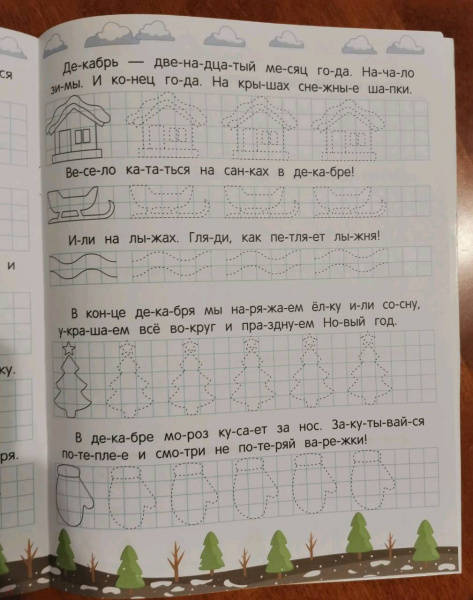 ся
Де-кабрь — две-на-дца-тый ме-сяц го-да. На-ча-ло
зи-мы. И ко-нец го-да. На кры-шах сне-жны-е ша-пки.
Ве-се-ло ка-та-ться на сан-ках в де-ка-бре!
И-ли на лы-жах. Гля-ди, как пе-тля-ет лы-жня!
и
В кон-це де-ка-бря мы на-ря-жа-ем ёл-ку и-ли со-сну,
у-кра-ша-ем всё во-круг и пра-здну-ем Но-вый год.
ку.
В де-ка-бре мо-роз ку-са-ет за нос. За-ку-ты-вай-ся
по-те-пле-е и смо-три не по-те-ряй ва-ре-жки!
ря.